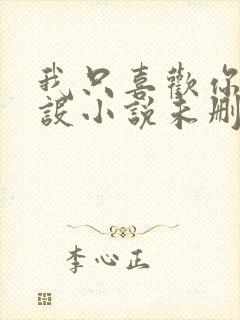 我只喜歡你
設小說未刪
李心正